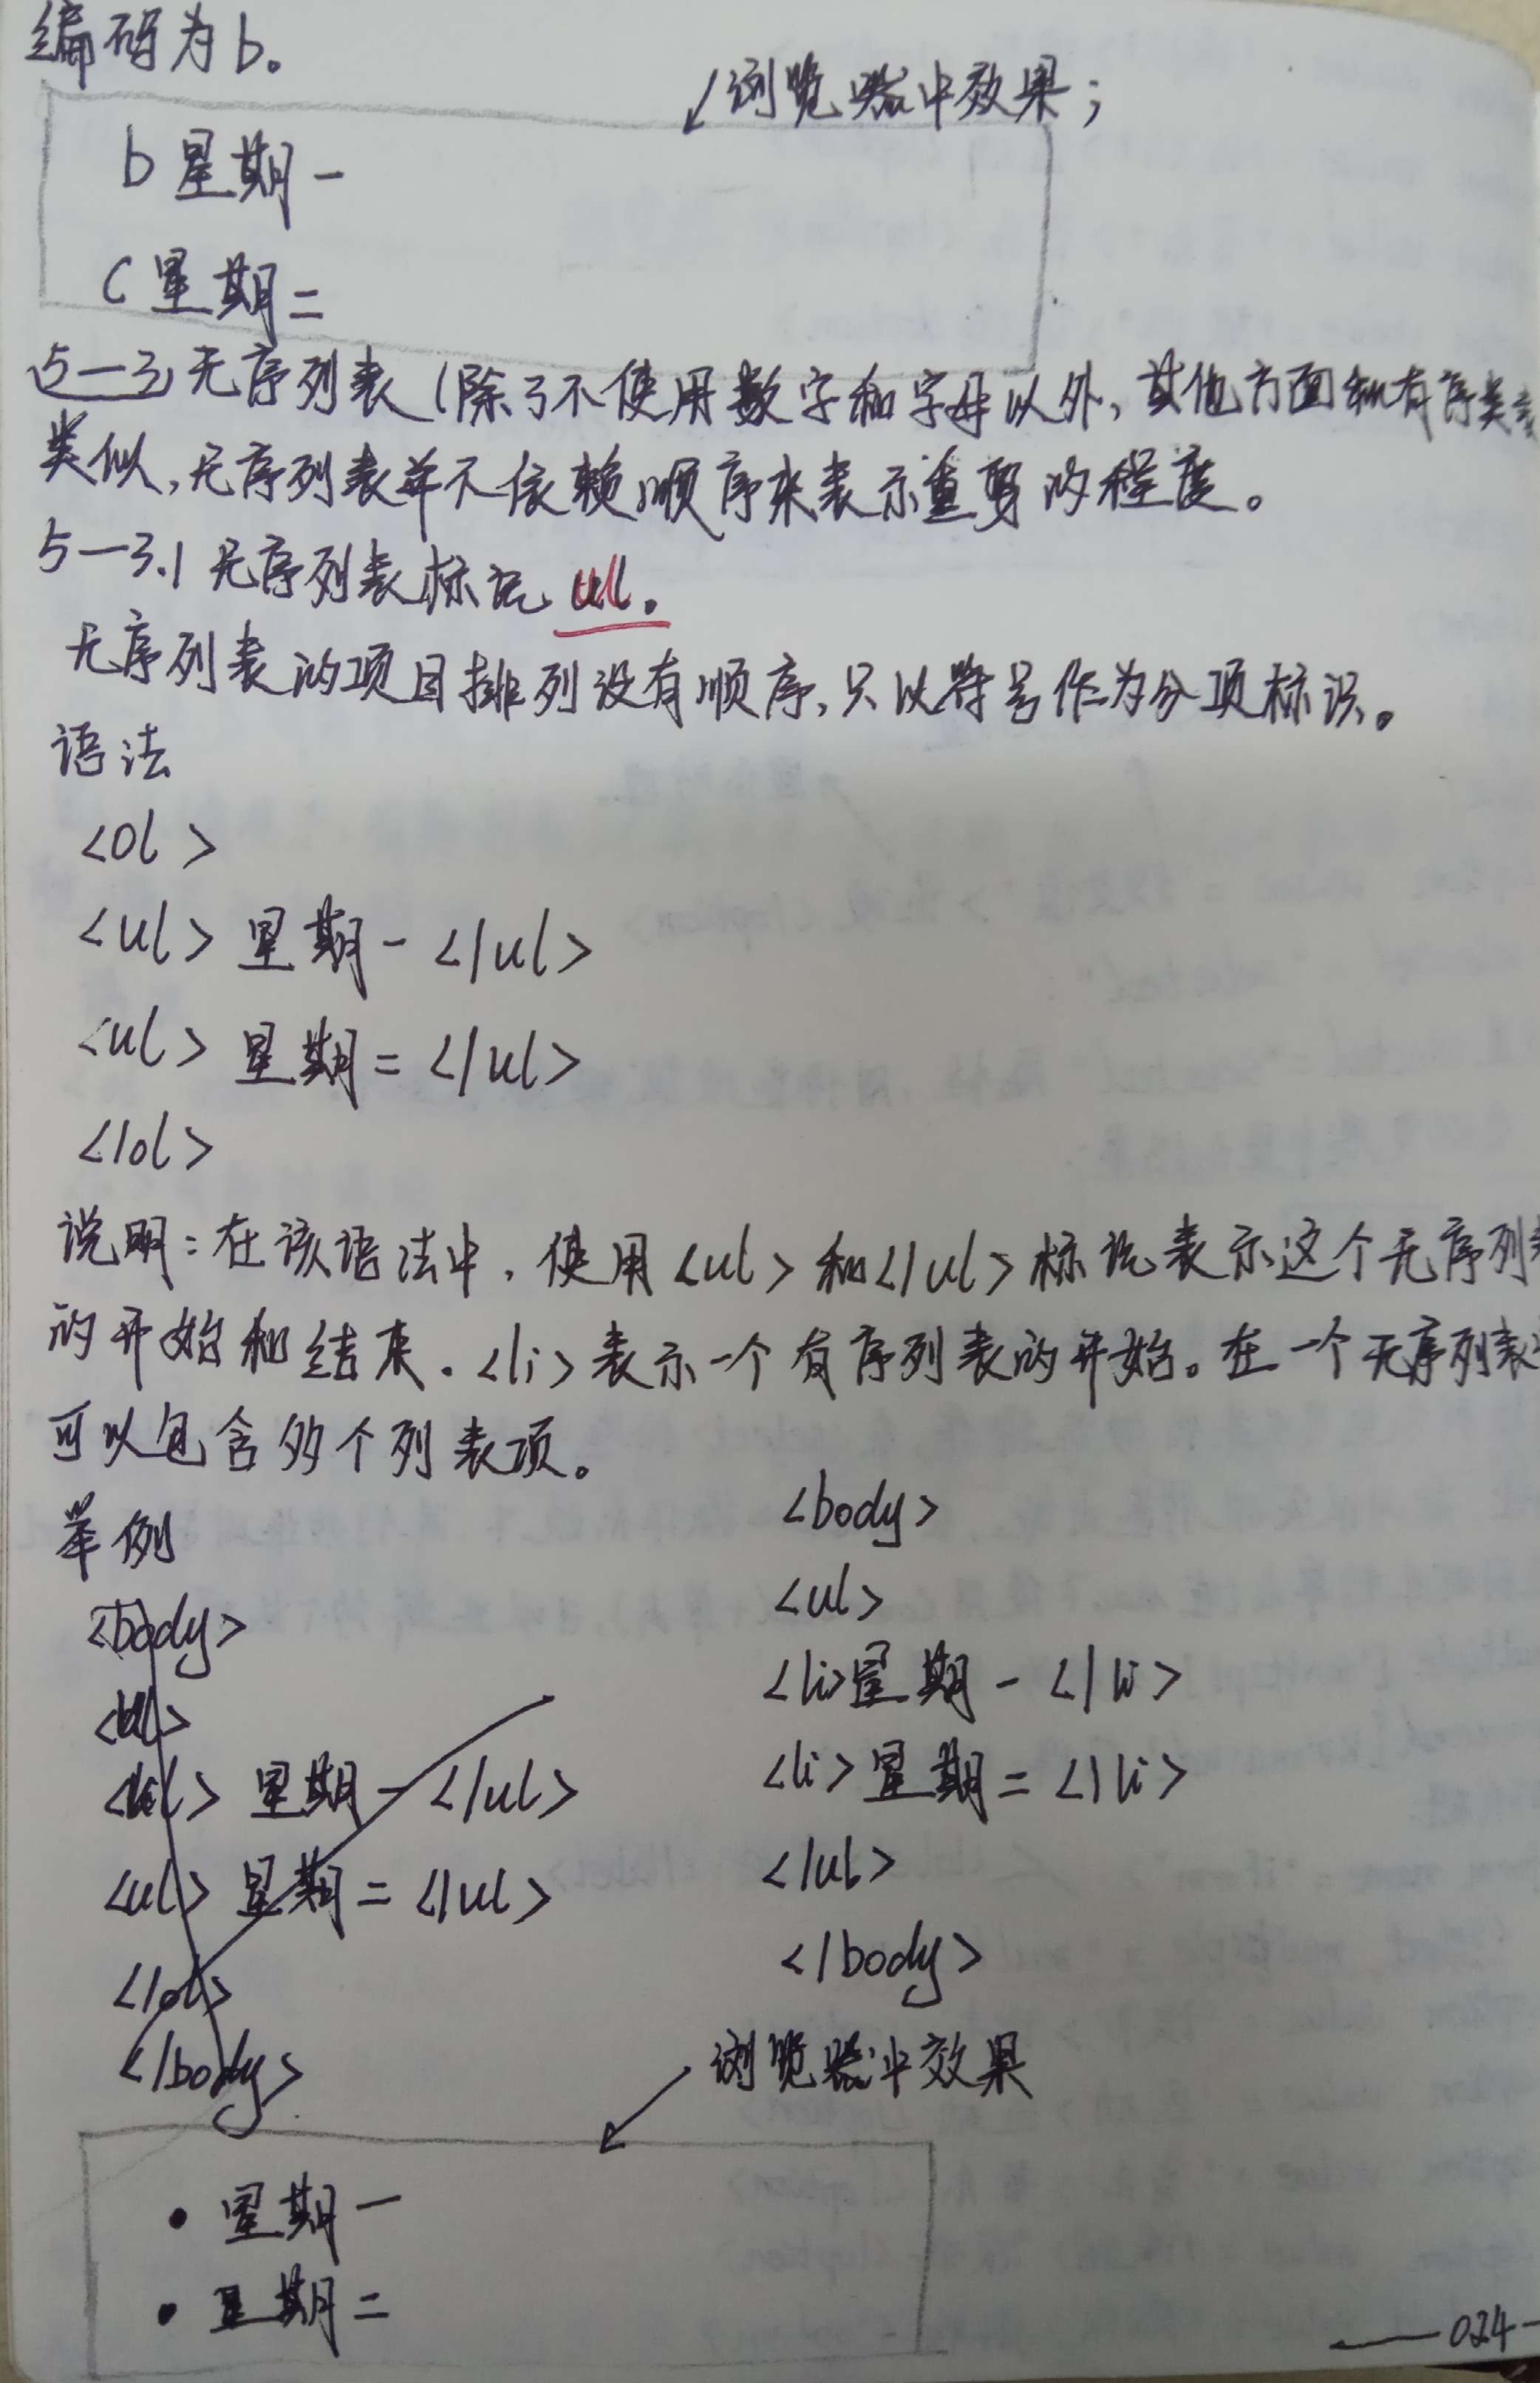 编码为b。
浏览器中效果;
b 星期一
c 星期二
5—3 无序列表(除了不使用数字和字母以外,其他方面和有序类
类似,无序列表并不依赖顺序来表示重要的程度。
5—3.1 无序列表标记 ul。
无序列表的项目排列没有顺序,只以符号作为分项标识。
语法
<ol>
<ul> 星期一 </ul>
<ul> 星期二 </ul>
</ol>
说明:在该语法中,使用<ul>和</ul>标记表示这个无序列
的开始和结束.<li>表示一个有序列表的开始。在一个无序列表
可以包含多个列表项。
举例
<body>
<ul> 星期一 </ul>
<ul> 星期二 </ul>
</ol>
</body>
<body>
<ul>
<li>星期一</li>
<li>星期二</li>
</ul>
</body>
浏览器中效果
• 星期一
• 星期二
—024—